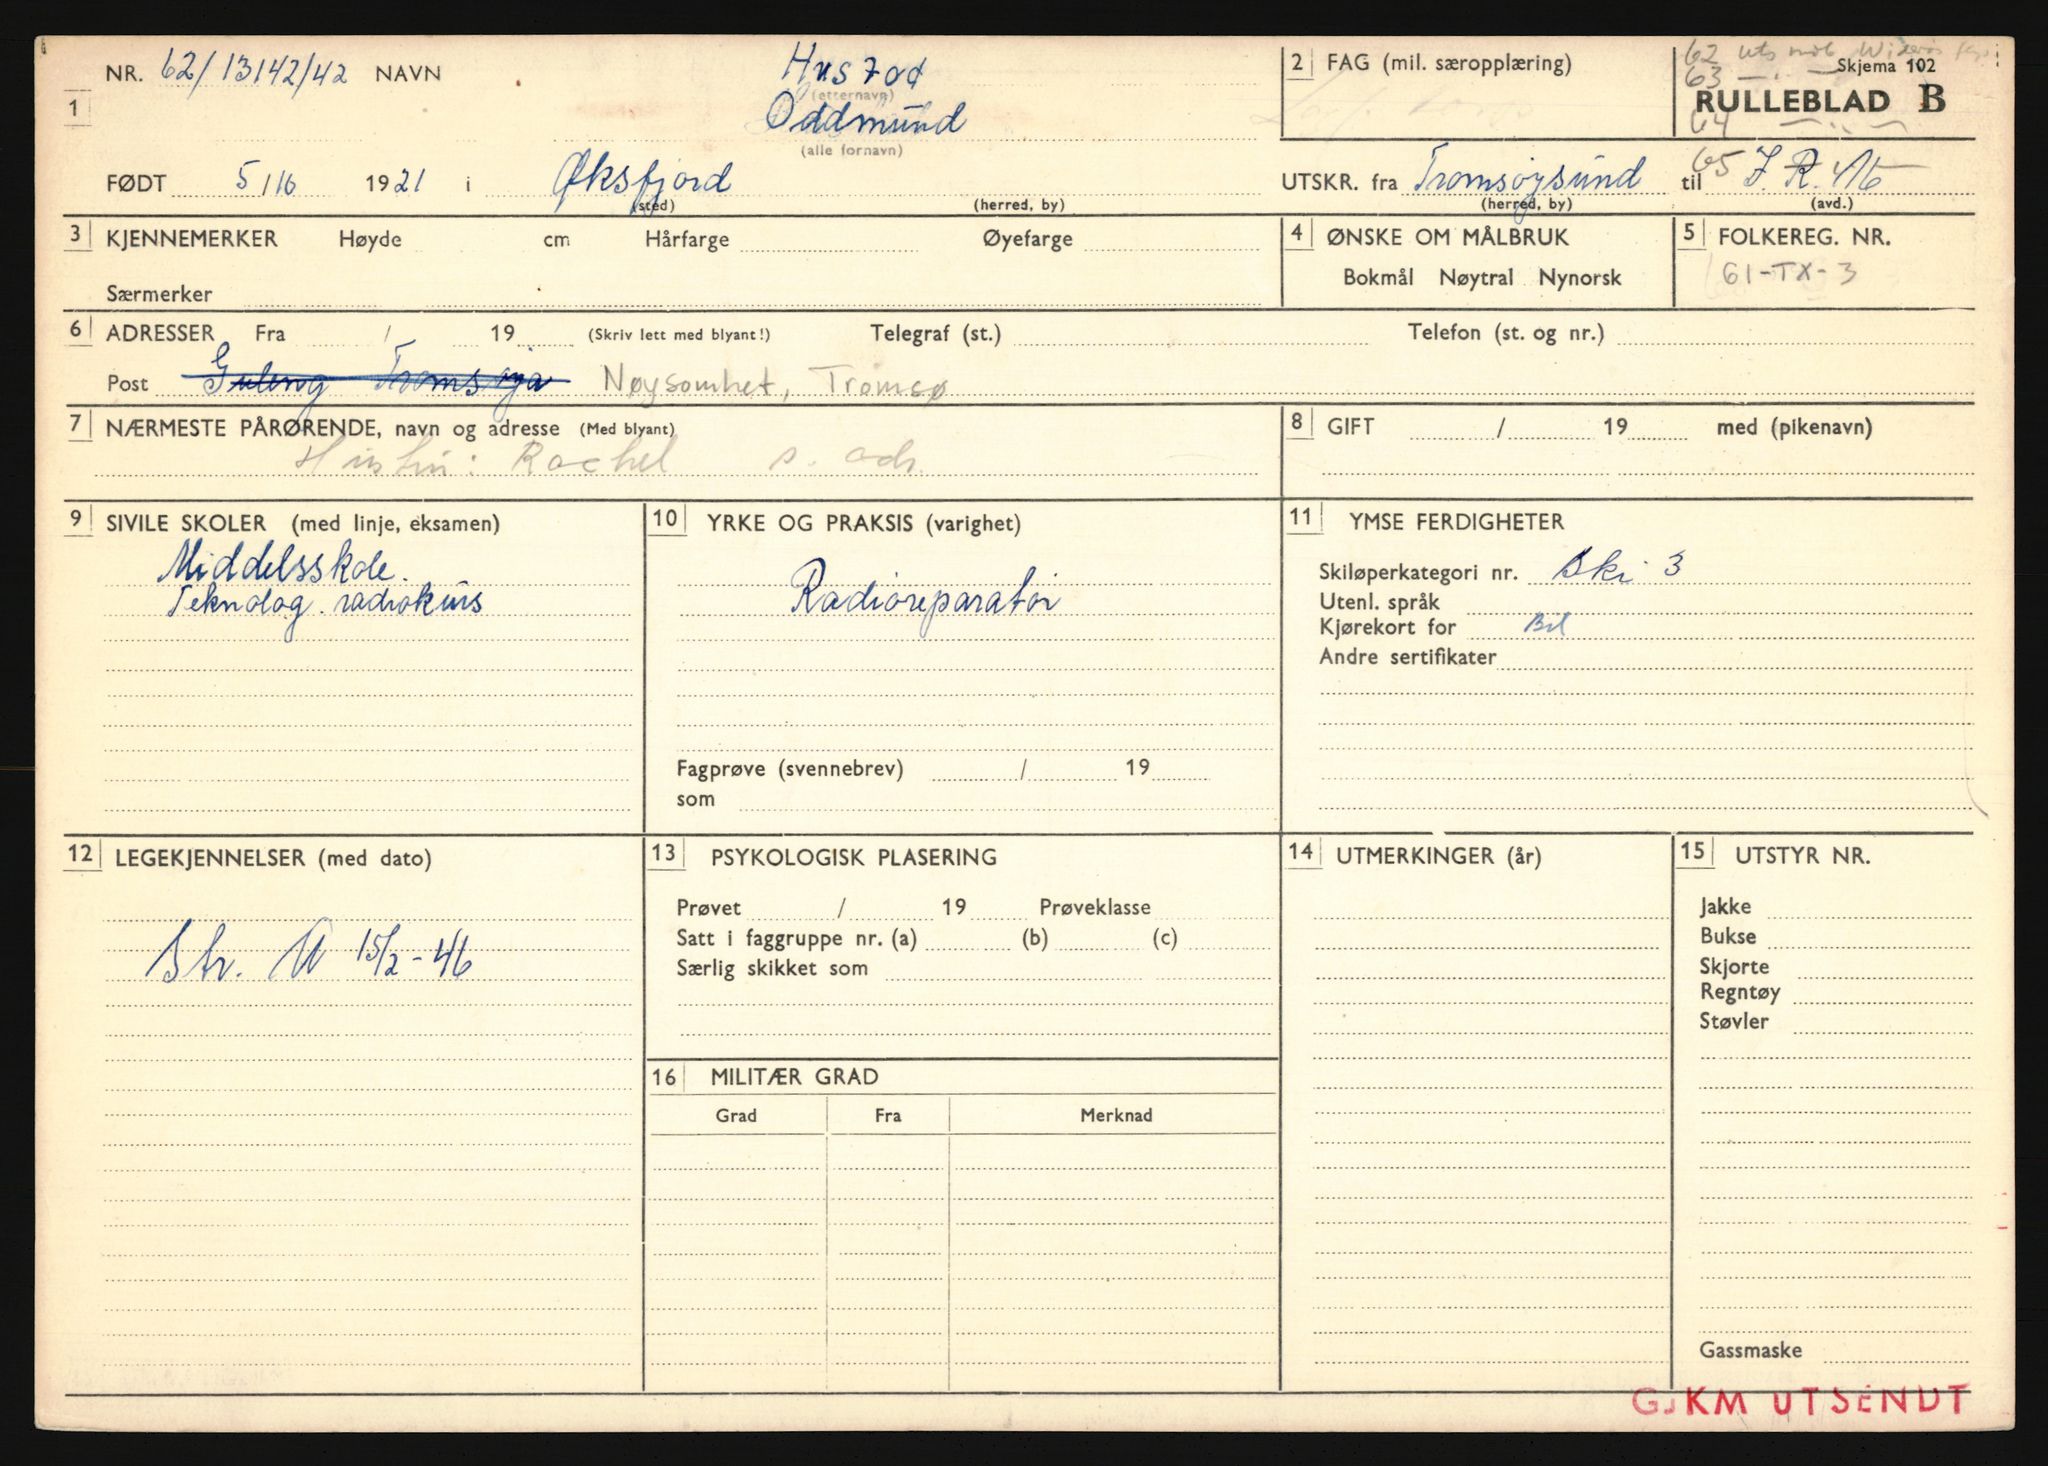 NR. 62/13142/42 NAVN
(etternavn)
Oddmund
(alle fornavn)
1
FØDT 5/10 1921 i Øksfjord
(sted) (herred, by)
2 FAG (mil. særopplæring)
62 uts mob Widerøe
63 — " — Skjema 102
RULLEBLAD B
64 — " —
65
UTSKR. fra Tromsøysund til I.R. 16
(herred, by) (avd.)
3 KJENNEMERKER Høyde cm Hårfarge Øyefarge
Særmerker
4 ØNSKE OM MÅLBRUK
Bokmål Nøytral Nynorsk
5 FOLKEREG. NR.
61-TX-3
6 ADRESSER Fra / 19 (Skriv lett med blyant!) Telegraf (st.) Telefon (st. og nr.)
Post Tromsøya Nøysomhet, Tromsø
7 NÆRMESTE PÅRØRENDE, navn og adresse (Med blyant)
Hustru: Rachel s. adr.
8 GIFT / 19 med (pikenavn)
9 SIVILE SKOLER (med linje, eksamen)
Middelsskole.
Teknolog. radiokurs
10 YRKE OG PRAKSIS (varighet)
Radioreparatør
Fagprøve (svennebrev) / 19
som
11 YMSE FERDIGHETER
Skiløperkategori nr. Ski 3
Utenl. språk
Kjørekort for Bil
Andre sertifikater
12 LEGEKJENNELSER (med dato)
Str. A 15/2-46
13 PSYKOLOGISK PLASERING
Prøvet / 19 Prøveklasse
Satt i faggruppe nr. (a) (b) (c)
Særlig skikket som
14 UTMERKINGER (år)
15 UTSTYR NR.
Jakke
Bukse
Skjorte
Regntøy
Støvler
Gassmaske
16 MILITÆR GRAD
Grad Fra Merknad
GJKM UTSENDT